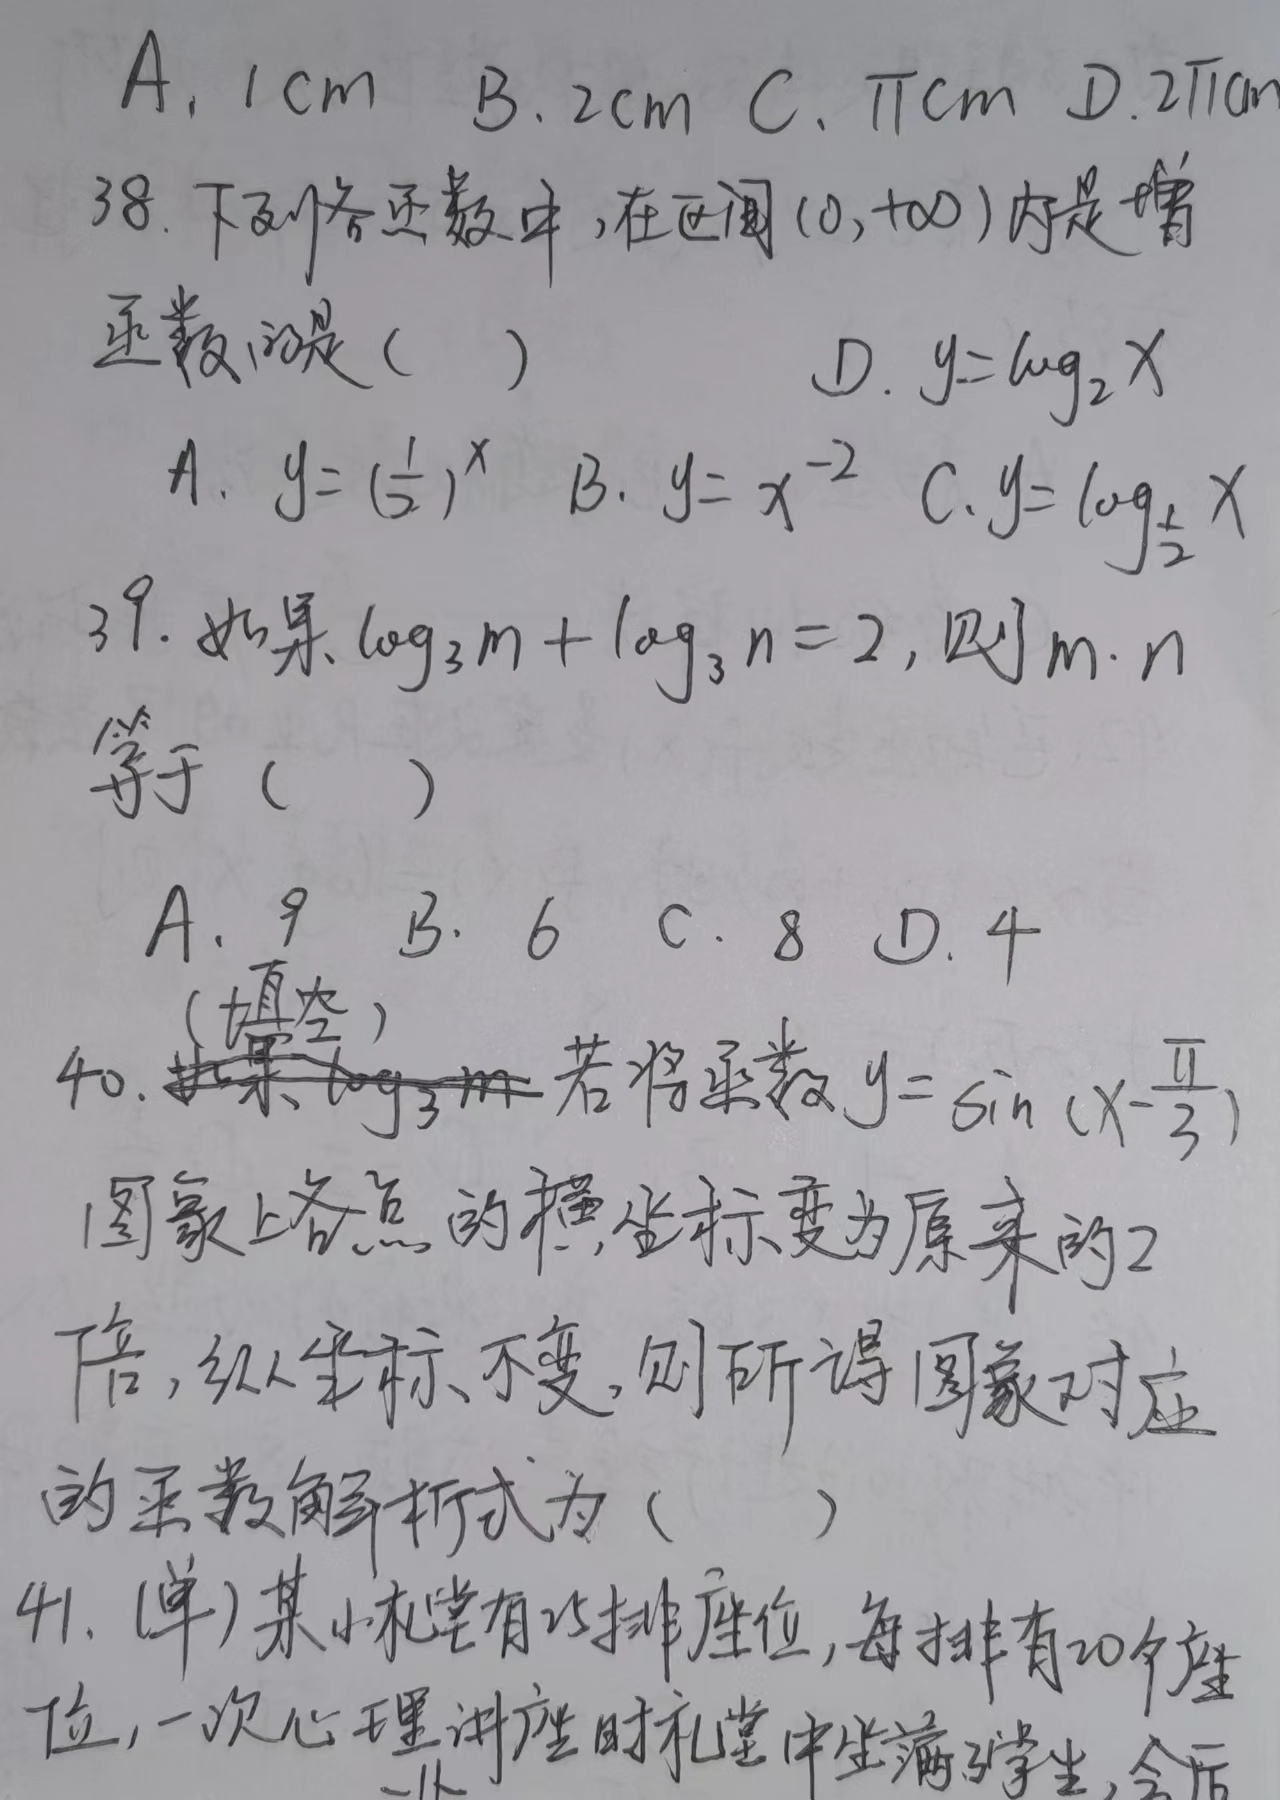 A. 1cm B. 2cm C. πcm D. 2πcm
38. 下列各函数中,在区间(0,+∞)内是增
函数的是( )
D. y=log₂x
A. y=(1/2)^x B. y=x^-2 C. y=log_{1/2} x
39. 如果log₃m+log₃n=2,则m·n
等于( )
A. 9 B. 6 C. 8 D. 4
(填空)
40. 如果log₃m 若将函数y=sin(x-π/3)
图象上各点的横坐标变为原来的2
倍,纵坐标不变,则所得图象对应
的函数解析式为( )
41. (单)某小礼堂有25排座位,每排有20个座
位,一次心理讲座时礼堂中坐满了学生,会后